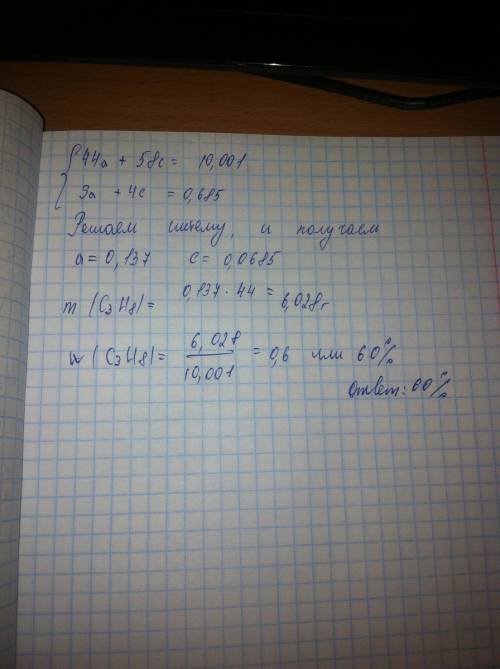 {44a + 58c = 10,001
3a + 4c = 0,685
Решаем систему, и получаем
a = 0,137 c = 0,0685
m (C3H8) = 0,137 · 44 = 6,028 г
w (C3H8) = 6,028 / 10,001 = 0,6 или 60%
Ответ: 60%